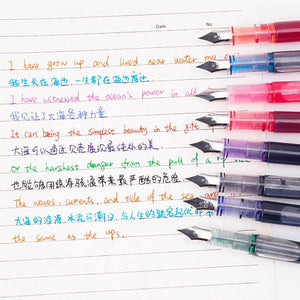 Date No.
I have grown up and lived near water my
我生长在海边，一生都在海边度过。
I have witnessed the ocean's power in all
我见证了大海各种力量
It can bring the simplest beauty in the
大海可以通过贝壳展示最纯朴的美
or the harshest danger from the pull of a
也能够用暗流海浪带来最严酷的危险
The waves, currents, and tide of the sea
大海的波浪、水流与潮汐，与人生的
the same as the ups.